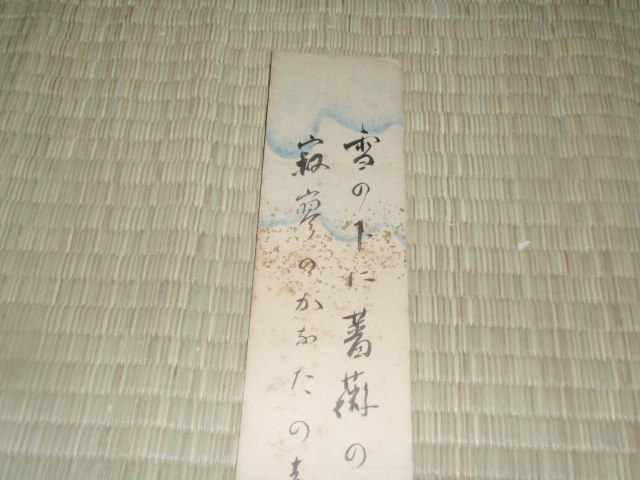 雪の下に薔薇の
寂寥のかなたの